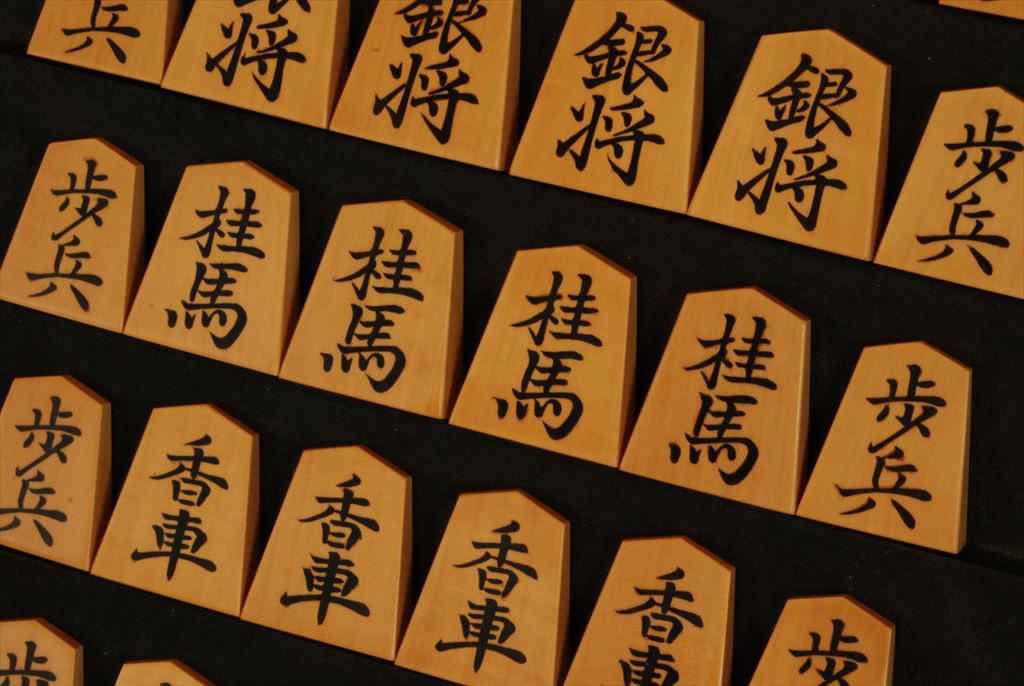 歩兵 銀将 銀将 銀将 銀将 歩兵
歩兵 桂馬 桂馬 桂馬 桂馬 歩兵
歩兵 香車 香車 香車 香車 歩兵
歩